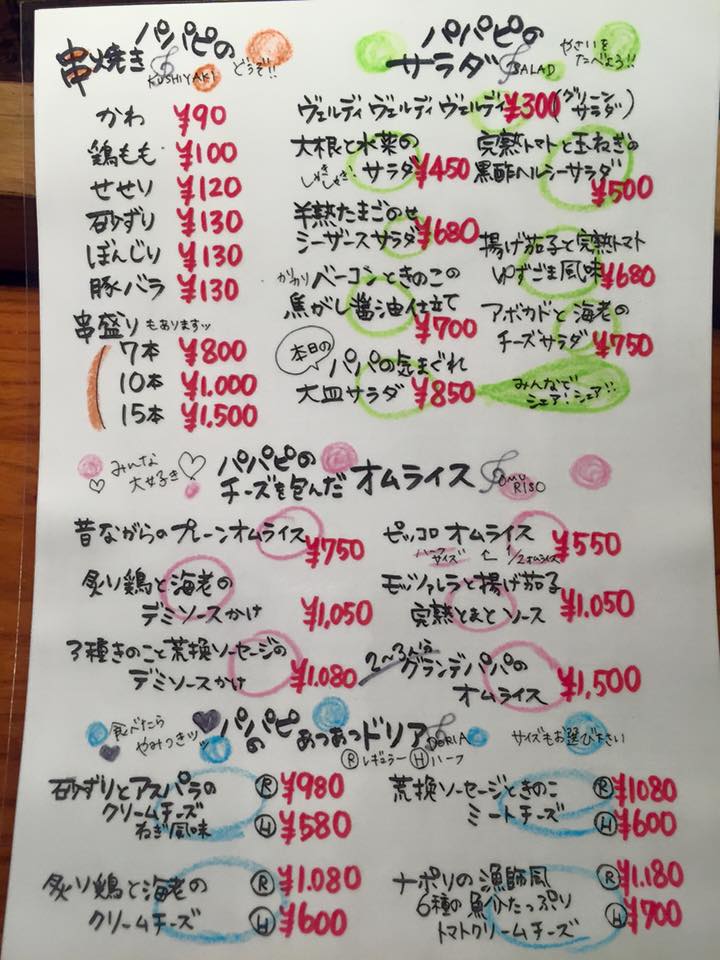 パパピの
串焼き
KUSHIYAKI
どうぞ!!
かわ ¥90
鶏もも ¥100
せせり ¥120
砂ずり ¥130
ぼんじり ¥130
豚バラ ¥130
串盛り もありますッ
7本 ¥800
10本 ¥1.000
15本 ¥1.500
パパピの
サラダ
SALAD
やさいを
たべよう!!
ヴェルディ ヴェルディ ヴェルディ ¥300 (グリーン
サラダ)
大根と水菜の
しゃきしゃき! サラダ ¥450
完熟トマトと玉ねぎの
黒酢ヘルシーサラダ
¥500
半熟たまごのせ
シーザースサラダ ¥680
揚げ茄子と完熟トマト
ゆずごま風味 ¥680
かりかりベーコンときのこの
焦がし醤油仕立て
¥700
アボカドと海老の
チーズサラダ ¥750
本日の
パパの気まぐれ
大皿サラダ ¥850
みんなで
シェア!シェア!!
みんな
大好き
パパピの
チーズを包んだ オムライス
OMU
RISO
昔ながらのプレーンオムライス
¥750
ピッコロ オムライス ¥550
ハーフサイズ ← 1/2オムライス
炙り鶏と海老の
デミソースかけ ¥1,050
モッツァレラと揚げ茄子
完熟とまと ソース ¥1.050
3種きのこと荒挽ソーセージの
デミソースかけ ¥1.080
2〜3人分
グランデパパの
オムライス ¥1,500
食べたら
やみつきッッ
パパピ
の あつあつドリア
DORIA
サイズもお選び下さい
Ⓡレギュラー Ⓗハーフ
砂ずりとアスパラの
クリームチーズ
ねぎ風味
Ⓡ ¥980
Ⓗ ¥580
荒挽ソーセージときのこ
ミートチーズ
Ⓡ ¥1080
Ⓗ ¥600
炙り鶏と海老の
クリームチーズ
Ⓡ ¥1.080
Ⓗ ¥600
ナポリの漁師風
6種の魚介たっぷり
トマトクリームチーズ
Ⓡ ¥1.180
Ⓗ ¥700